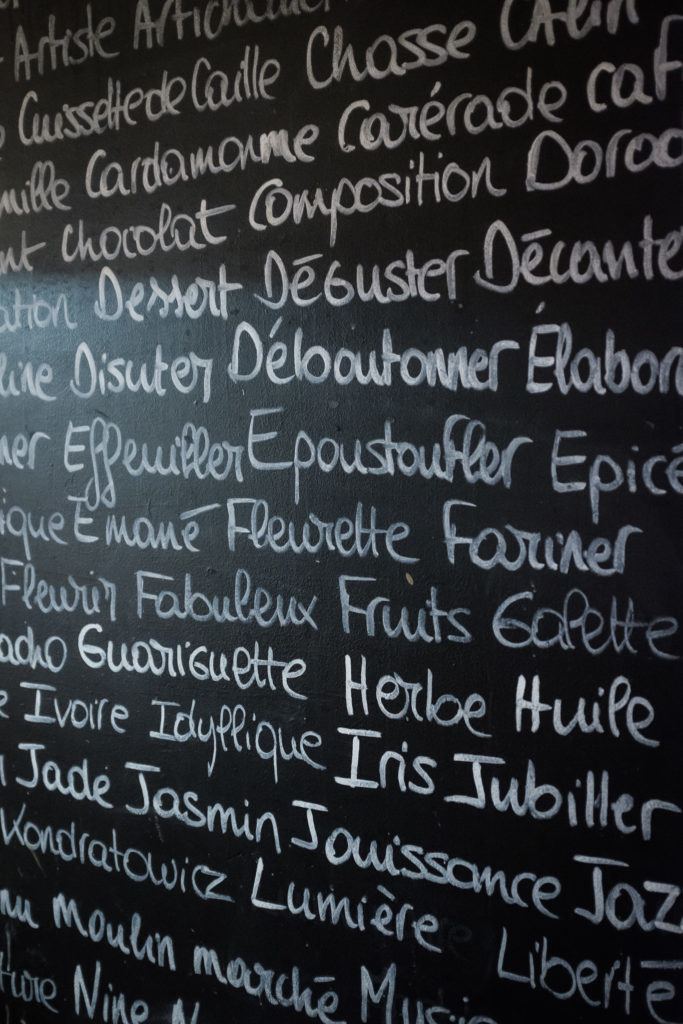 Artiste Artichaut
Cuissette de Caille Chasse Câlin
mille Cardamonme Carérade caf
nt chocolat Composition Doroo
ation Dessert Déguster Décante
line Disuter Déboutonner Élabor
ner Effeuiller Epoustoufler Epicé
ique Emané Fleurette Fariner
Fleurir Fabuleux Fruits Galette
acho Guariguette Herbe Huile
e Ivoire Idyllique Iris Jubiller
Jade Jasmin Jouissance Jaz
Kondratowicz Lumière Liberté
nu Moulin marché Music
ture Nine N